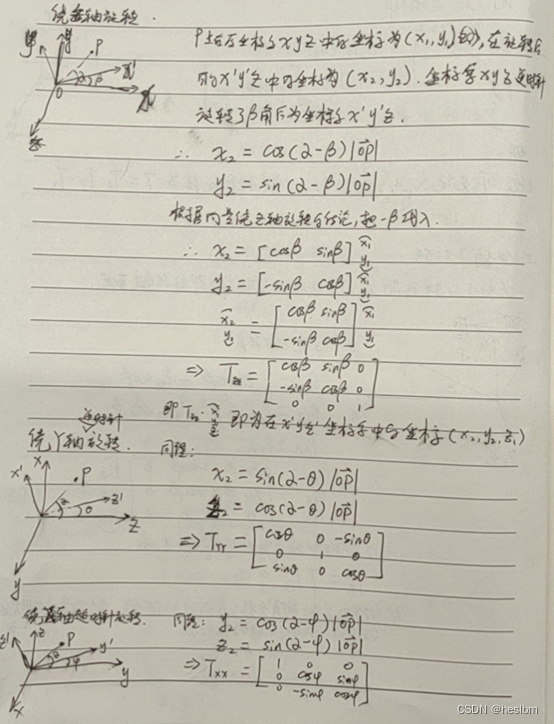 绕z轴旋转.
P点在坐标系xyz中的坐标为(x₁, y₁), 在旋转后
的x'y'z中的坐标为(x₂, y₂). 坐标系xyz逆时针
旋转了β角后为坐标系x'y'z.
∴ x₂ = cos(α-β)|op|
y₂ = sin(α-β)|op|
根据向量绕z轴旋转的结论, 把-β代入.
∴ x₂ = [cosβ sinβ] x₁ y₁
y₂ = [-sinβ cosβ] x₁ y₁
x₂ = [cosβ sinβ] x₁
y₂ [-sinβ cosβ] y₁
⇒ T = [cosβ sinβ 0
-sinβ cosβ 0
0 0 1]
即 T · x y z 即为在x'y'z'坐标系中的坐标(x₂, y₂, z₁)
逆时针
绕Y轴旋转. 同理:
x₂ = sin(α-θ)|op|
z₂ = cos(α-θ)|op|
⇒ Tyy = [cosθ 0 -sinθ
0 1 0
sinθ 0 cosθ]
绕 轴逆时针旋转. 同理: y₂ = cos(α-φ)|op|
z₂ = sin(α-φ)|op|
⇒ Txx = [1 0 0
0 cosφ sinφ
0 -sinφ cosφ]
CSDN @heslbm